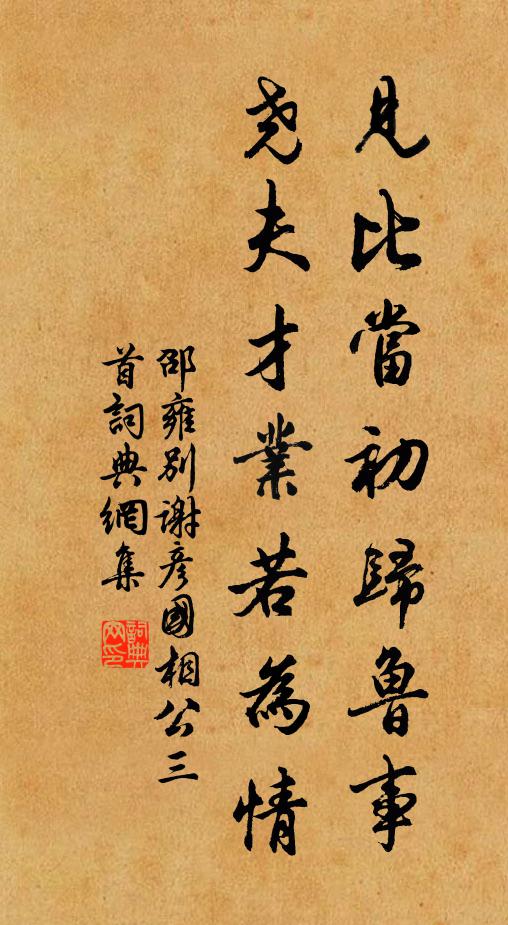 見比當初歸魯事
堯夫才業若為情
邵雍別謝彦國相公三
首詞典網集
詞典
网印